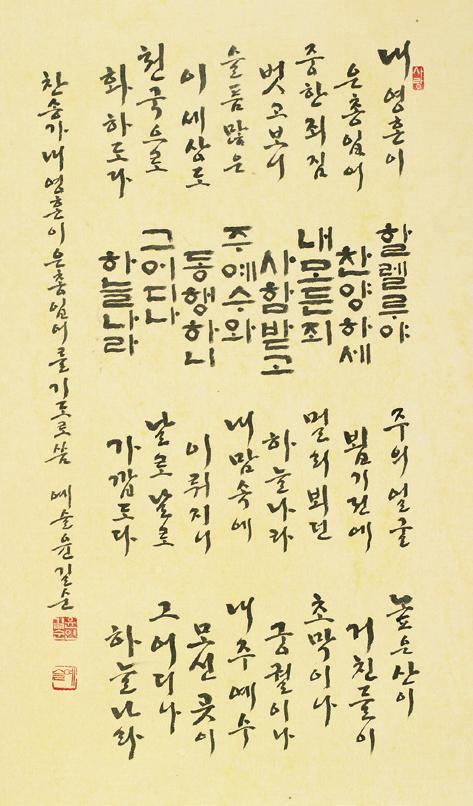 사랑
내 영혼이
은총입어
중한죄짐
벗고보니
슬픔많은
이 세상도
천국으로
화하도다
할렐루야
찬양하세
내모든죄
사함받고
주예수와
동행하니
그어디나
하늘나라
주의얼굴
뵙기전에
멀리뵈던
하늘나라
내맘속에
이뤄지니
날로날로
가깝도다
높은산이
거친들이
초막이나
궁궐이나
내주예수
모신곳이
그어디나
하늘나라
찬송가 내영혼이 은총입어를 기도로 씀 예슬 윤길순
예슬